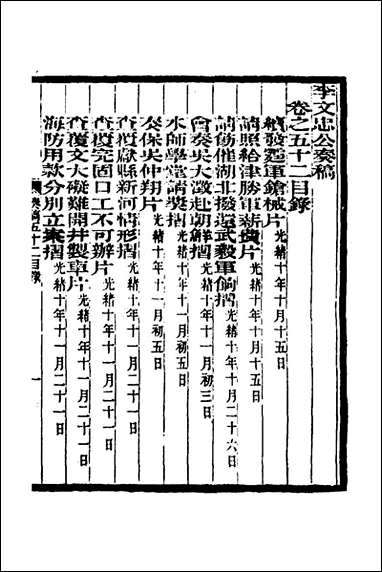 李文忠公奏稿
卷之五十二目錄
續發霆軍鎗械片 光緒十年十月十五日
請照給津勝軍薪損片 光緒十年十月十五日
請飭催湖北撥還武毅軍餉摺 光緒十年十月二十六日
會奏吳大澂赴朝鮮摺 光緒十年十一月初三日
水師學堂請獎摺 光緒十年十一月初五日
奏保吳仲翔片 光緒十年十一月初五日
查覆獻縣新河情形摺 光緒十年十一月二十一日
查覆完固口工不可辦片 光緒十年十一月二十一日
查覆文大礙難開井製車片 光緒十年十一月二十一日
海防用款分別立案摺 光緒十年十一月二十一日
奏稿五十二目錄
一